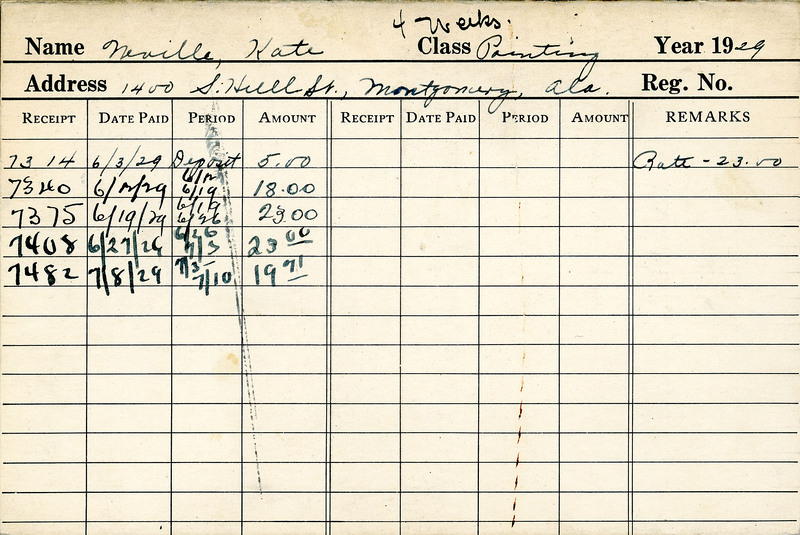 4 Weeks.
Name Neville, Kate Class Painting Year 1929
Address 1400 S. Hull St., Montgomery, Ala. Reg. No.
RECEIPT DATE PAID PERIOD AMOUNT RECEIPT DATE PAID PERIOD AMOUNT REMARKS
7314 6/3/29 Deposit 5.00 Rate - 23.00
7340 6/12/29 6/12 6/19 18.00
7375 6/19/29 6/19 6/26 23.00
7408 6/27/26 6/26 7/3 23 00
7482 7/8/29 7/3 7/10 19 71